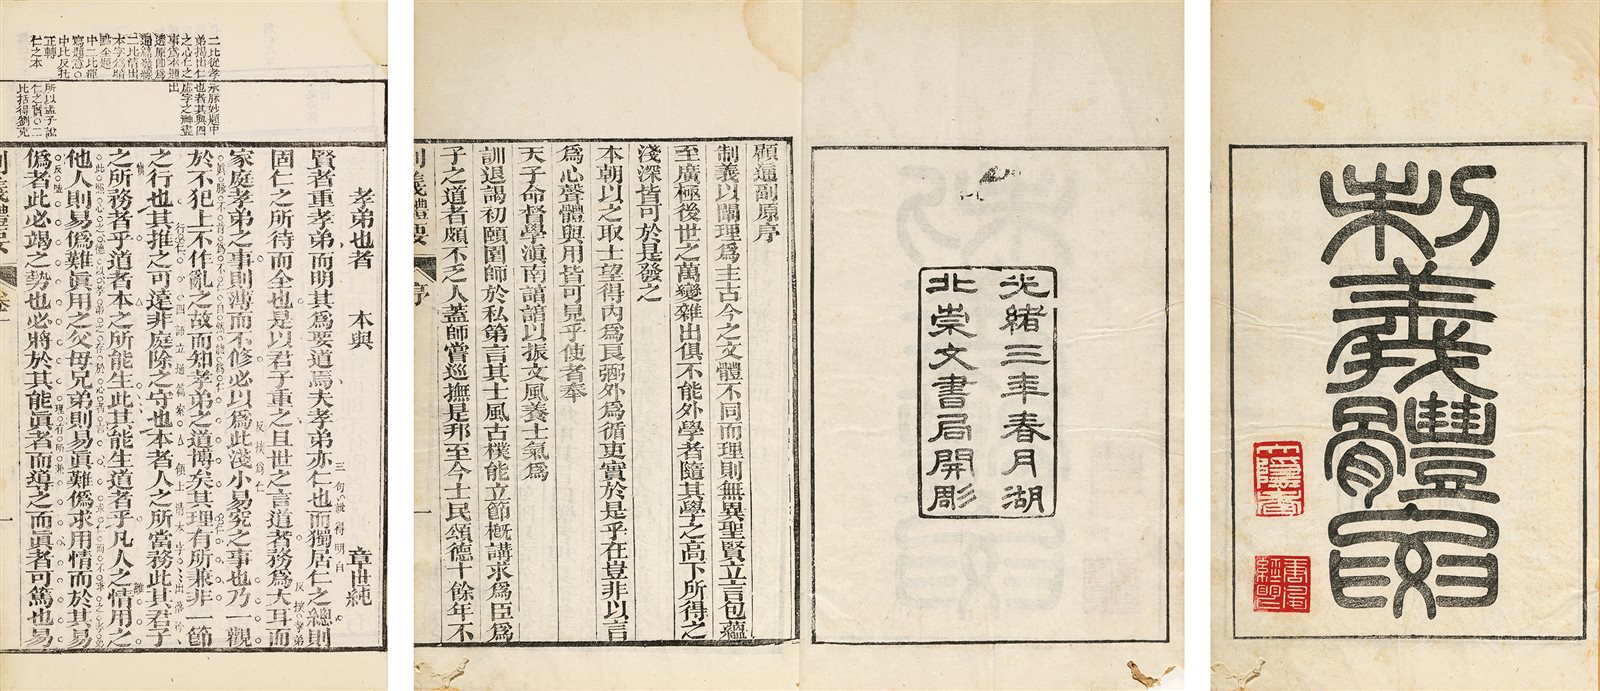 制義體要
光緒三年春月湖
北崇文書局開彫
顧通副原序
制義以闡理為主古今之文體不同而理則無異聖賢立言包蘊
至廣極後世之萬變雜出俱不能外學者隨其學之高下所得之
淺深皆可於是發之
本朝以之取士望得內為良弼外為循吏實於是乎在豈非以言
為心聲體與用皆可見乎使者奉
天子命督學滇南諳諳以振文風養士氣為
訓退謁初頤園師於私第言其士風古樸能立節概講求為臣為
子之道者頗不乏人蓋師嘗巡撫是邦至今士民頌德十餘年不
制義體要 序 一
二比從孝
弟揭出仁
之心仁之
事為本題
本字為暗
點全題
中二比運
寫題意○
正轉
仁之本
也者其與四
虛字之神盡
出
所以孟子說
仁之實○二
比括得劉克
孝弟也者 本與 章世純
賢者重孝弟而明其為要道焉夫孝弟亦仁也而獨居仁之總則
固仁之所待而全也是以君子重之且世之言道者務為大耳而
家庭孝弟之事則薄而不修必以為此淺小易究之事也乃一觀
於不犯上不作亂之故而知孝弟之道博矣其理有所兼非一節
之行也其推之可遠非庭除之守也本者人之所當務此其君子
之所務者乎道者本之所能生此其能生道者乎凡人之情用之
他人則易偽難真用之父母兄弟則易真難偽求用情而於其易
偽者此必竭之勢也必將於其能真者而導之而真者可篤也易
制義體要 卷一 一